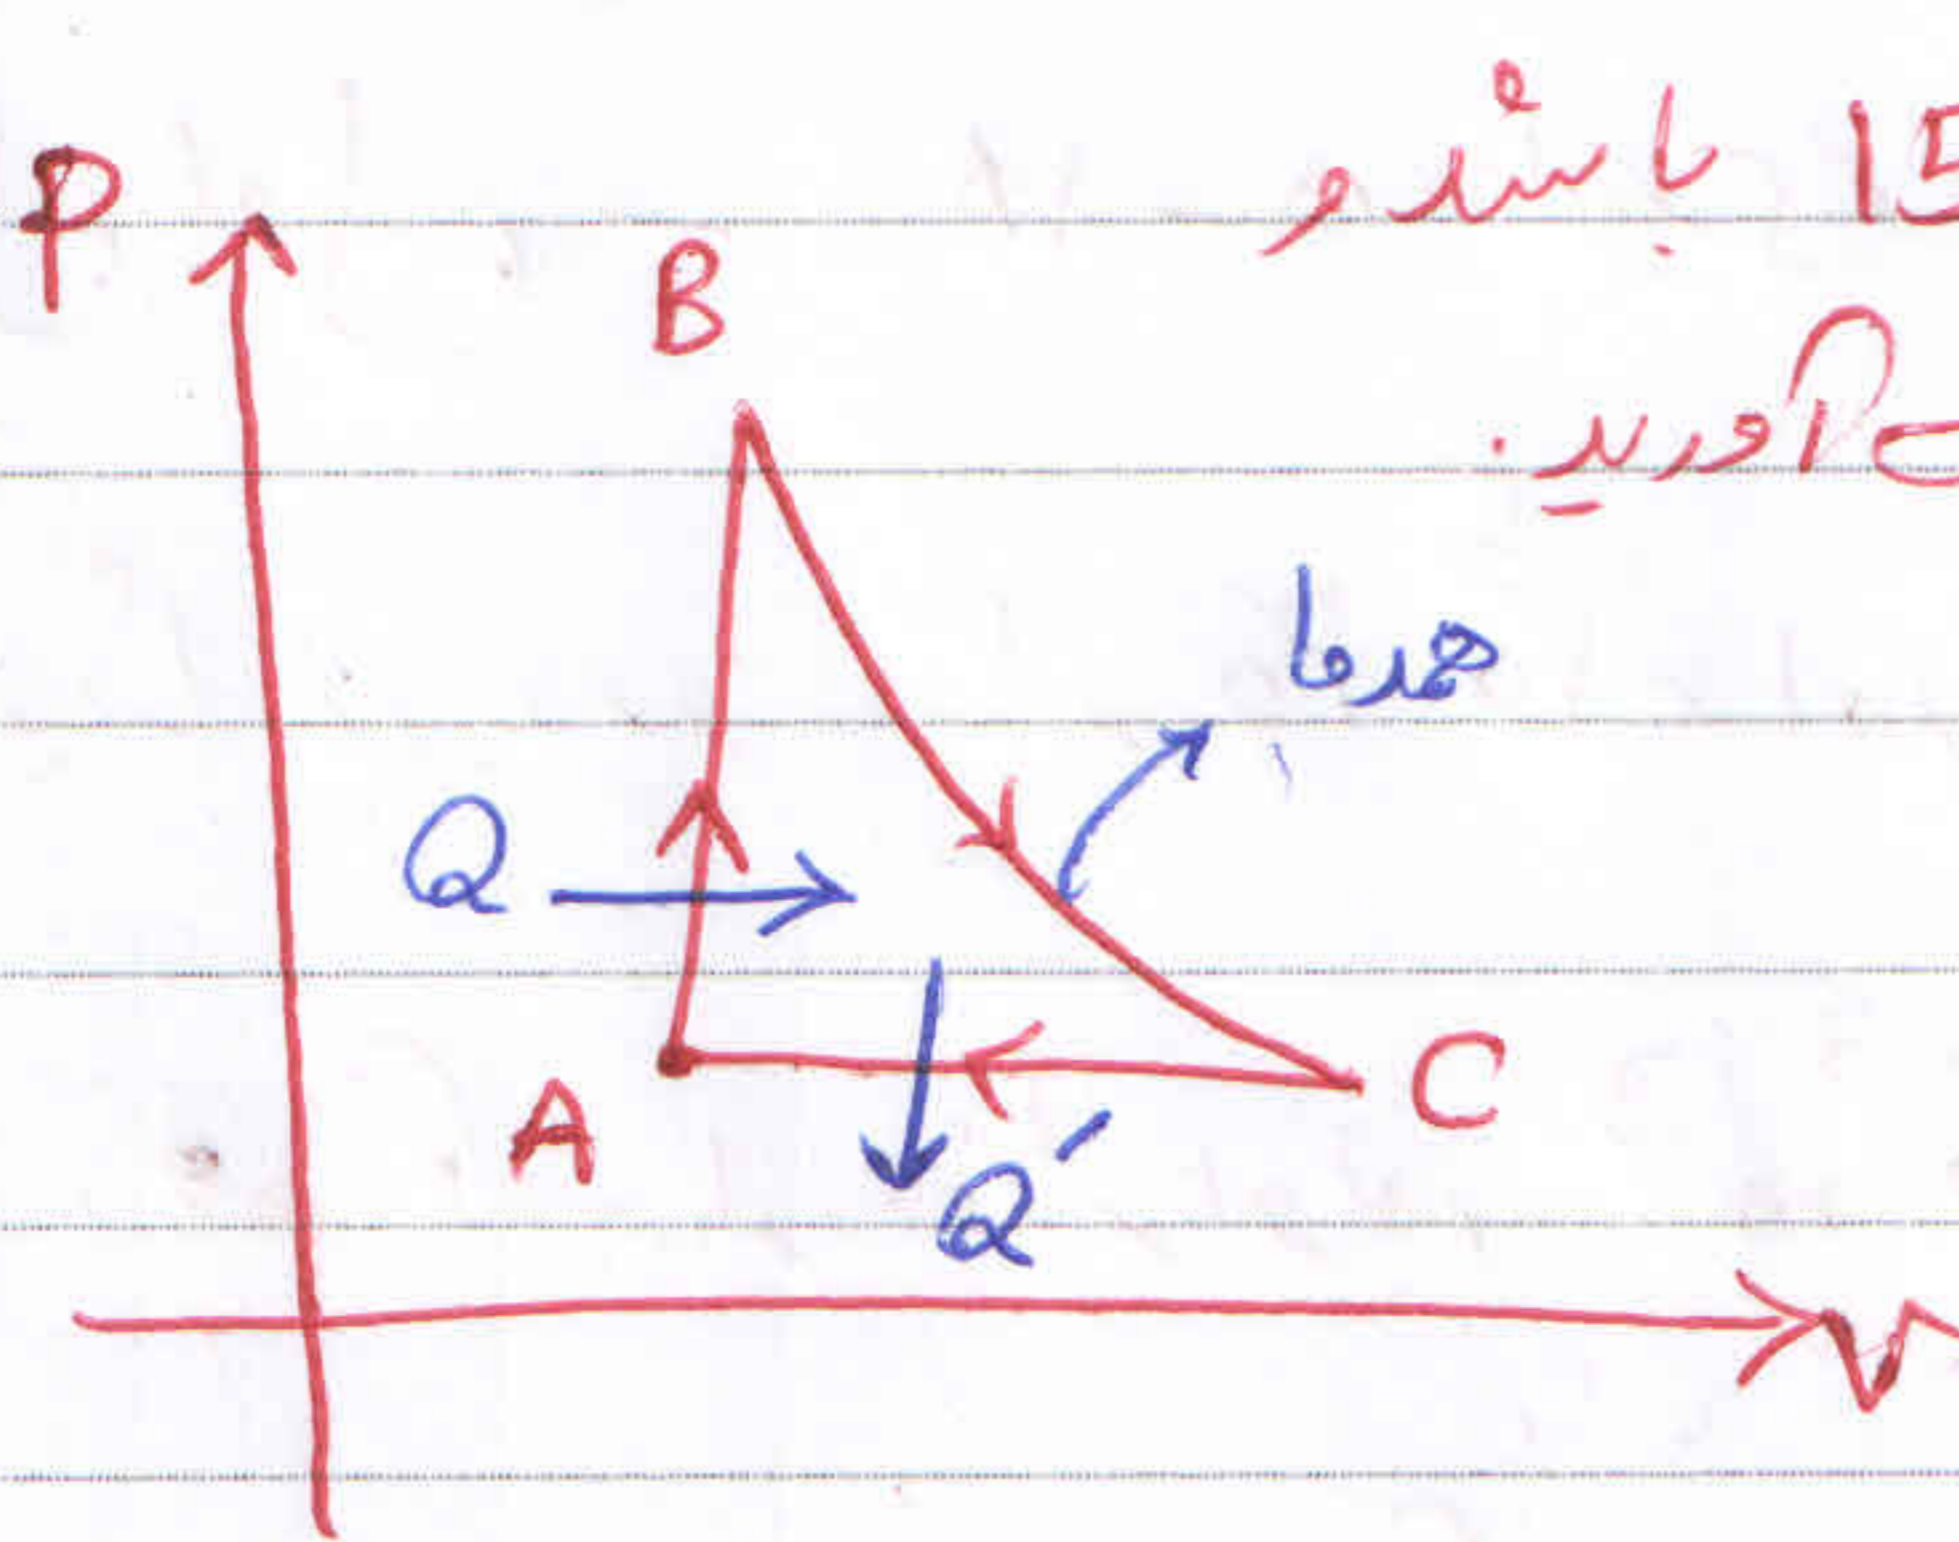 15 باشد و
ت آورید.
P
B
همدما
Q
A
C
Q′
V